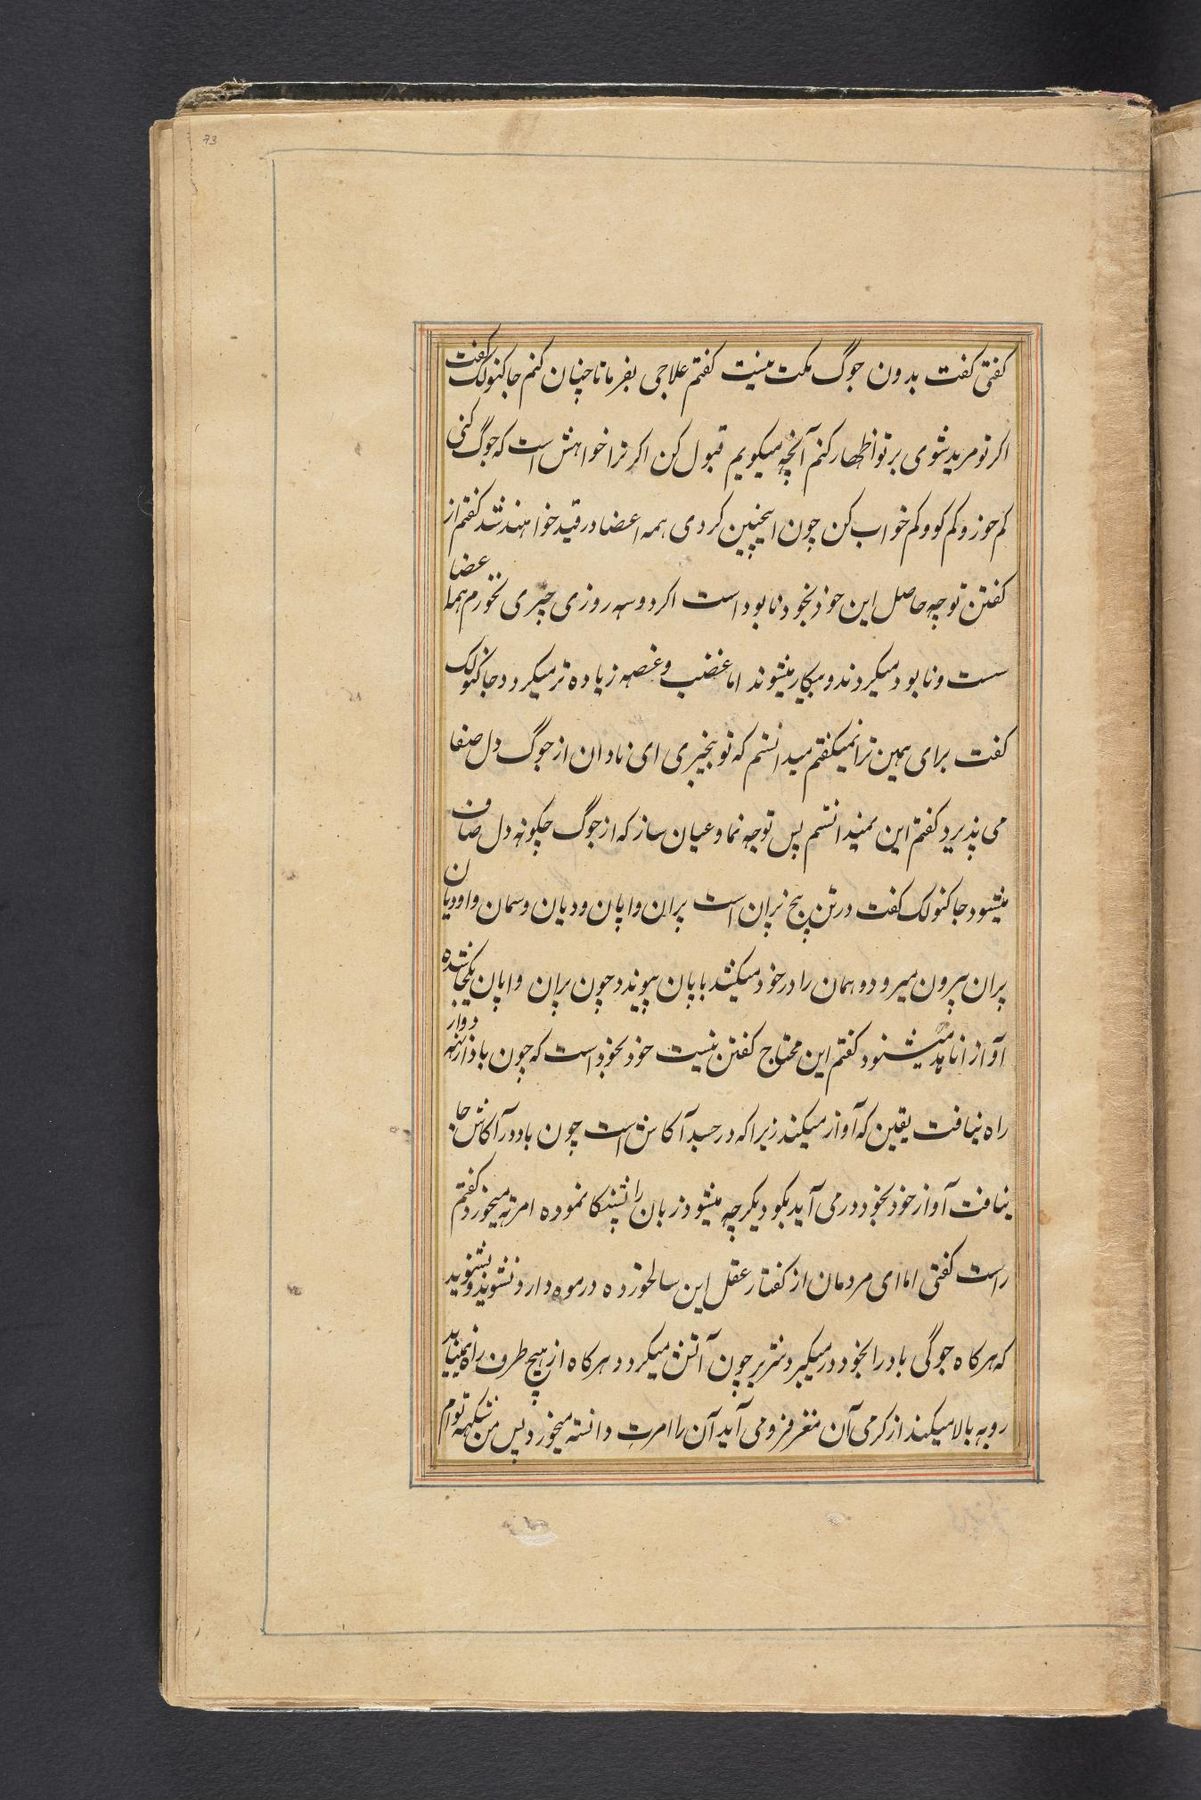 73
کفتی کفت بدون جوگ مکت نیست کفتم علاجی بفرما تا چنان کنم جاکنولک کفت
اکر تو مرید شوی بر تو اظهار کنم آنچه میکویم قبول کن اکر ترا خواهش است که جوگ کنی
کم خور و کم کو و کم خواب کن چون اینچنین کردی همه اعضا در قید خواهند شد کفتم از
کفتن تو چه حاصل این خود بخود نابود است اکر دو سه روزی چیزی نخورم همه اعضا
سست و نابود میکردند و بیکار میشوند اما غضب و غصه زیاده تر میکردد جاکنولک
کفت برای همین ترا نمیکفتم میدانستم که تو بیخبری ای نادان از جوگ دل صفا
می پذیرد کفتم این نمیدانستم پس توجه نما و عیان ساز که از جوگ چکونه دل صاف
میشود جاکنولک کفت در تن پنج پران است پران و اپان و دیان و سمان و اودیان
پران بیرون میرود و همان را در خود میکشد با پان پیوندد چون پران و اپان یکجا شده
آواز اناهد میشنود کفتم این محتاج کفتن نیست خود بخود است که چون باد از
راه نیافت یقین که آواز میکند زیرا که در جسد آکاش است چون باد در آکاش جا
نیافت آواز خود بخود در می آید بکو دیکر چه میشود زبان را نموده امرته میخورد کفتم
راست کفتی اما ای مردمان از کفتار عقل این سالخورده در موه دارد نشوید و بشنوید
که هرکاه جوگی باد را بخود در میکیرد شرر چون آتش میکردد هرکاه از هیچ طرف راه نمییابد
رو به بالا میکند از کرمی آن مغز فرو می آید آن را امرت دانسته میخورد پس من